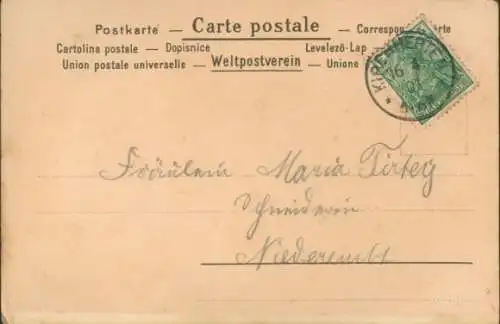 Postkarte — Carte postale — Correspon
Cartolina postale — Dopisnice Levelező-Lap
Union postale universelle — Weltpostverein — Unione
Fräulein Maria
Schneiderin
Niederembt